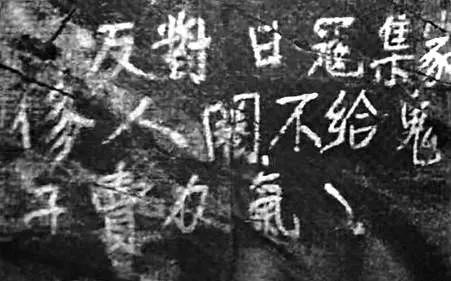 反對日寇集家
修人圈不給鬼
子賣力氣